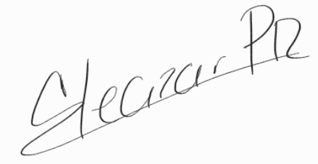 Eleazar PR